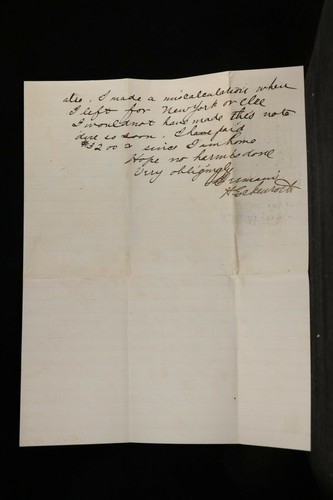 atis. I made a miscalculation when
I left for New York or else
I would not have made this note
due so soon. I have paid
$3200 since I am home
Hope no harm is done
Very obligingly
I Remain
H Eckenroth